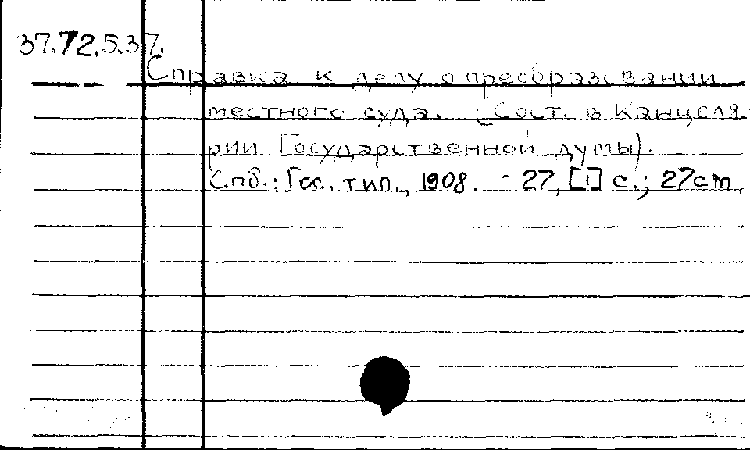 37.72.5.37.
Справка к делу о преобразовании
местного суда. (Сост. в Канцеля-
рии Государственной думы).
Спб.: Гос. тип., 1908. - 27, [1] с.; 27cm.